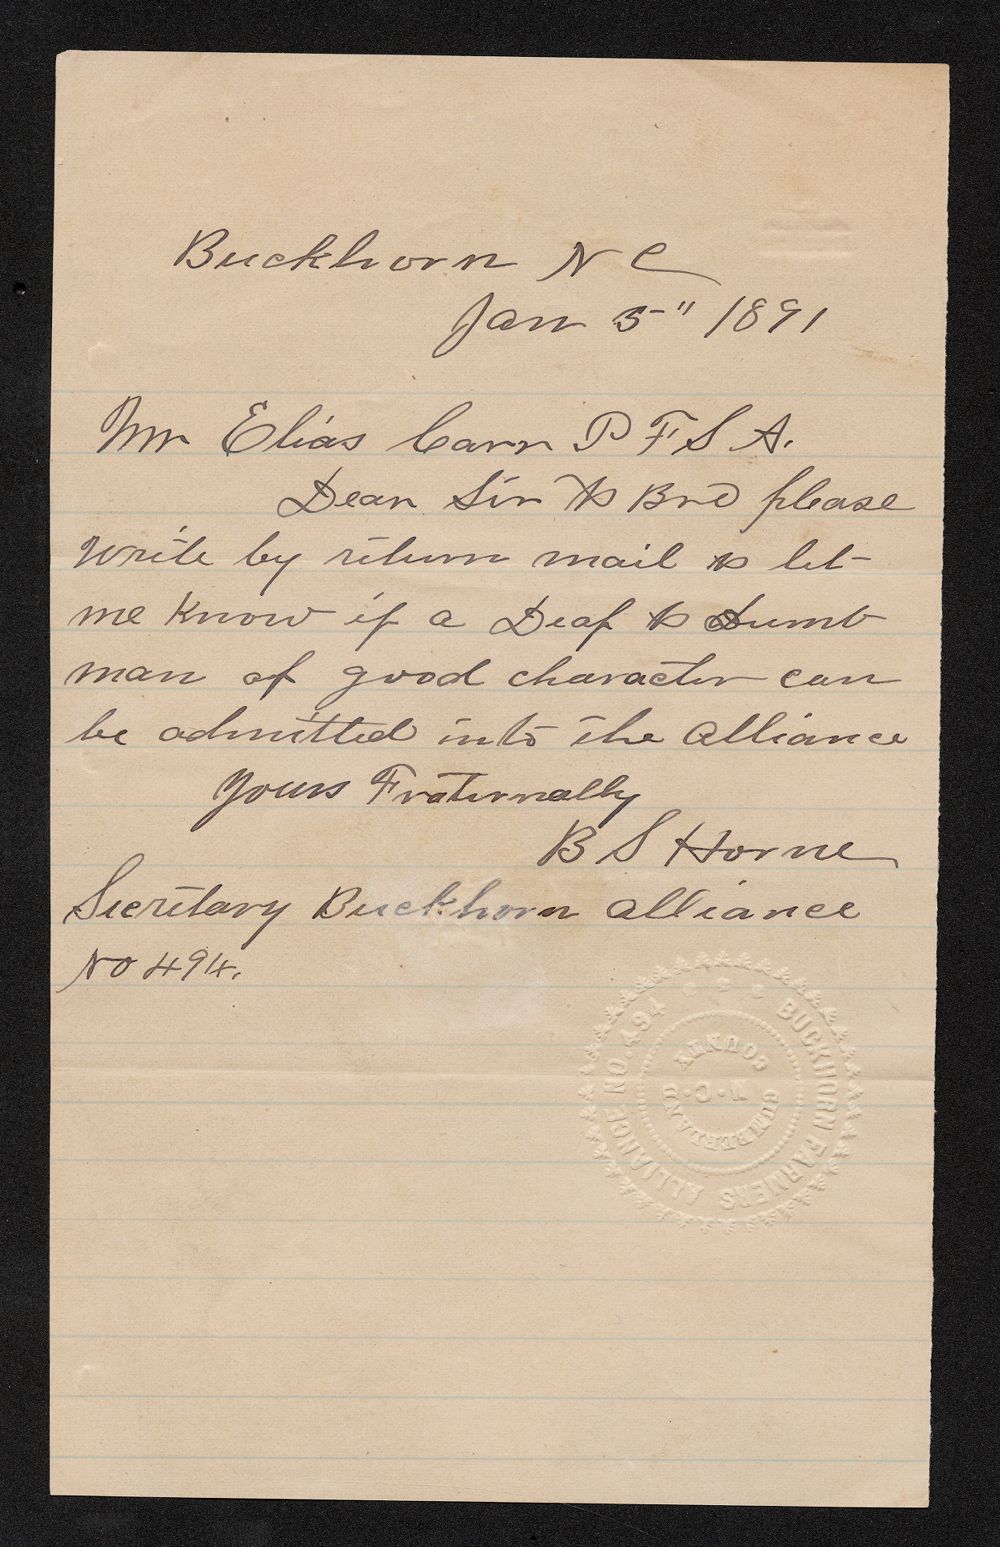 Buckhorn N C
Jan 5" 1891
Mr Elias Carr P F S A.
Dear Sir & Bro please
write by return mail & let
me know if a Deaf & Dumb
man of good character can
be admitted into the alliance
Yours Fraternally
B S Horne
Secretary Buckhorn alliance
No 494.
BUCKHORN FARMERS ALLIANCE NO. 494
CUMBERLAND COUNTY
N.C.